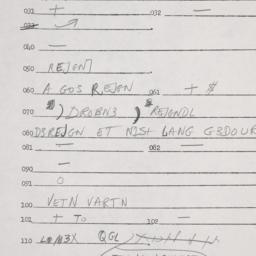 031 + 032 —
033
040 —
050 REJGNJ
060 A GOS REJGN 061 + $
070 ) DROBN3 ) REJGNDL
080 DSREJGN ET NIS+ LANG G3DOUR
081 — 082 —
090 —
091 0
100 VETN VARTN
101 + TO 102 —
110 QGL